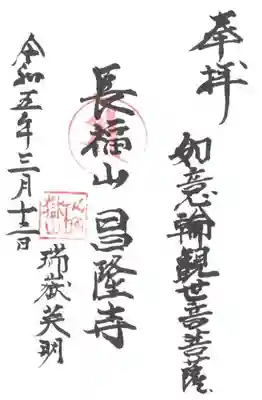 奉拝
如意輪観世音菩薩
長福山 昌隆寺
瑞嶽英明
令和五年三月十三日